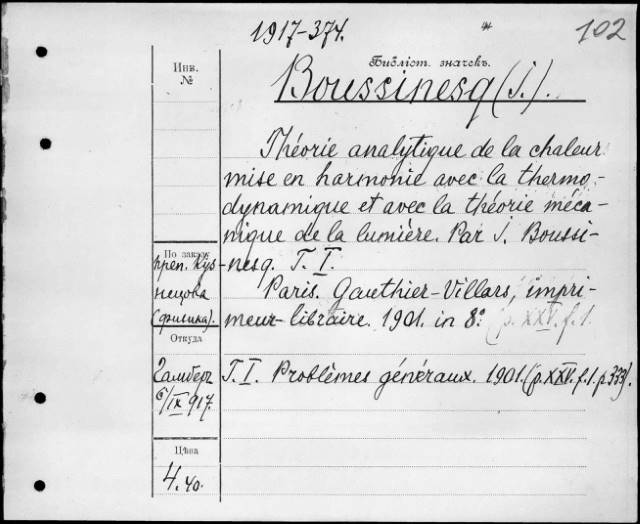 1917-374.
102
Инв.
№
Библіот. значекъ.
Boussinesq (J.).
Théorie analytique de la chaleur
mise en harmonie avec la thermo-
dynamique et avec la théorie méca-
nique de la lumière. Par J. Boussi-
nesq. T. I.
Paris. Gauthier-Villars, impri-
meur-libraire. 1901. in 8º (p. XXV. f. 1.
По заказу
преп. Куз-
нецова
(физика).
Откуда
Гамберг
6/IX 917.
T. I. Problèmes généraux. 1901. (p. XXV. f. 1. p. 333).
Цѣна
4.40.